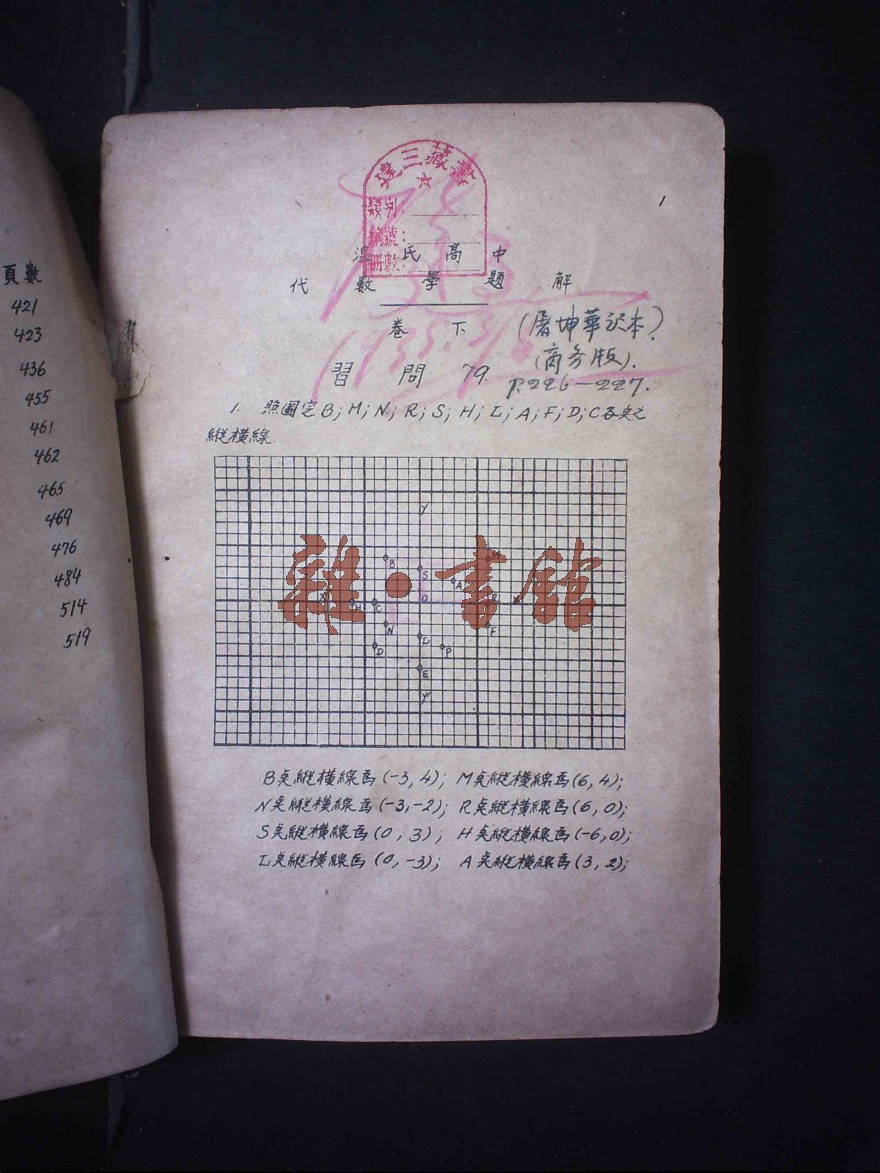 頁數
421
423
436
455
461
462
465
469
476
484
514
519
建三藏書
類別:
編號:
冊數:
1
溫氏高中
代數學題解
卷下 (屠坤華譯本)
(商务版).
習問 79. P.226—227.
1. 照圖定B; M; N; R; S; H; L; A; F; D; C各点之
縱横線
Y
B
S
A
O
H
C
R
N
F
L
D
P
E
Y'
雜·書館
B点縱横線為(-3, 4); M点縱横線為(6, 4);
N点縱横線為(-3,-2); R点縱横線為(6, 0);
S点縱横線為(0, 3); H点縱横線為(-6,0);
L点縱横線為(0, -3); A点縱横線為(3, 2);